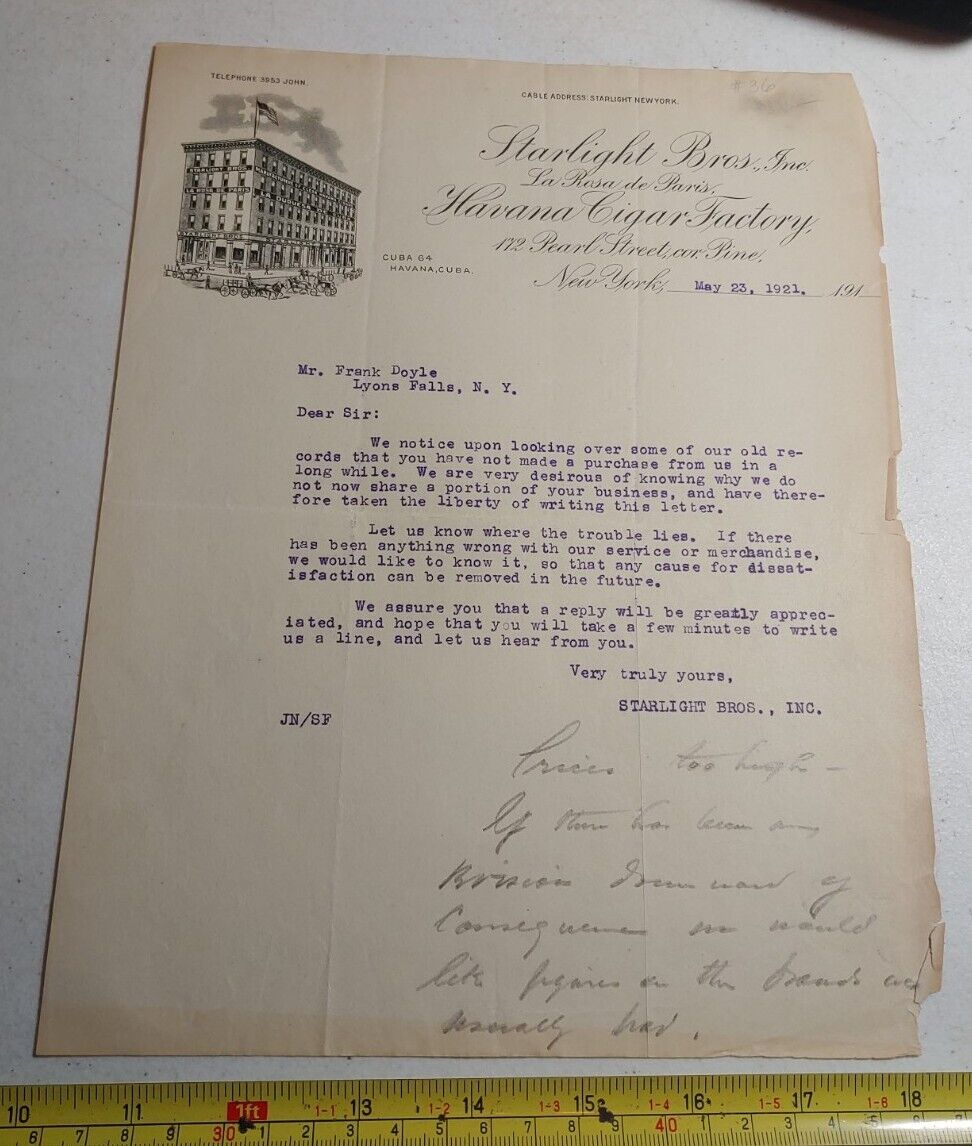 TELEPHONE 3953 JOHN.
CABLE ADDRESS: STARLIGHT NEWYORK.
#36
STARLIGHT BROS.
LA ROSA DE PARIS.
STARLIGHT BROS.
Starlight Bros., Inc.
La Rosa de Paris,
Havana Cigar Factory,
172 Pearl Street, cor. Pine,
CUBA 64
HAVANA, CUBA.
New York, May 23, 1921. 191
Mr. Frank Doyle
Lyons Falls, N. Y.
Dear Sir:
We notice upon looking over some of our old re-
cords that you have not made a purchase from us in a
long while. We are very desirous of knowing why we do
not now share a portion of your business, and have there-
fore taken the liberty of writing this letter.
Let us know where the trouble lies. If there
has been anything wrong with our service or merchandise,
we would like to know it, so that any cause for dissat-
isfaction can be removed in the future.
We assure you that a reply will be greatly apprec-
iated, and hope that you will take a few minutes to write
us a line, and let us hear from you.
Very truly yours,
STARLIGHT BROS., INC.
JN/SF
Prices too high -
If there has been any
Revision downward of
Consequence we would
like figures on the brands we
usually had.
10 11 1ft 1-1 13 1-2 14 1-3 15 1-4 16 1-5 17 1-6 18
6 7 8 9 30 1 2 3 4 5 6 7 8 9 40 1 2 3 4 5 6